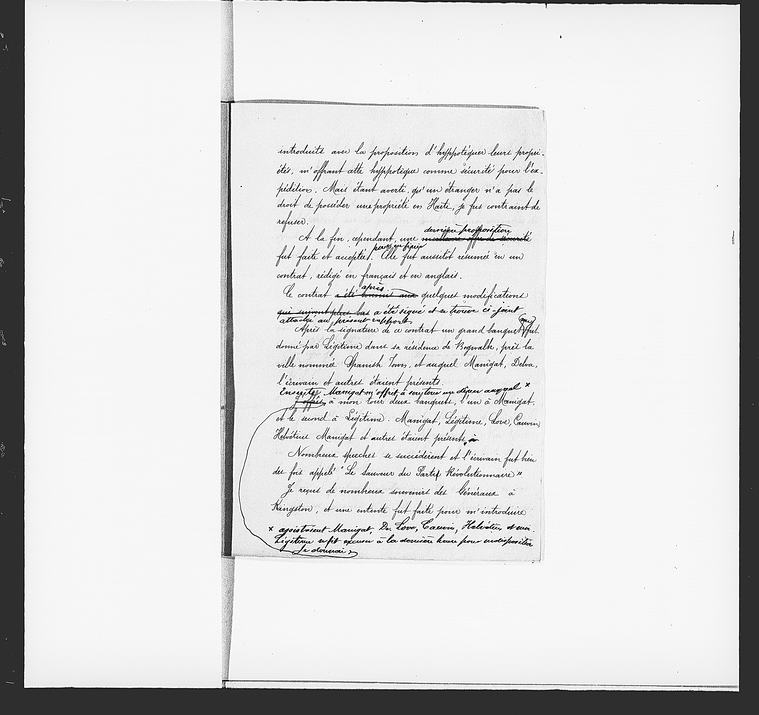 introduits avec la proposition d'hyppotéquer leurs propri-
étés, m'offrant cette hyppotèque comme sécurité pour l'ex-
pédition. Mais étant averti, qu'un étranger n'a pas le
droit de posséder une propriété en Haïti, je fus contraint de
refuser.
dernière proposition
A la fin, cependant, une meilleure offre de sécurité
fut faite et acceptée. Elle fut aussitôt résumée en un
contrat, rédigé en français et en anglais.
après
Le contrat a été soumis aux quelques modifications
qui suivent plus bas a été signé et se trouve ci-joint
attaché au présent rapport.
Après la signature de ce contrat un grand banquet fut
donné par Légitime dans sa résidence de Bogwalk, près la
ville nommée Spanish Town, et auquel Manigat, Delva,
l'écrivain et autres étaient présents.
Ensuite Manigat m'offrit à son tour un dîner auquel x
J'offris à mon tour deux banquets, l'un à Manigat,
et le second à Légitime. Manigat, Légitime, Love, Cauvin,
Helvétius Manigat et autres étaient présents à
Nombreux speeches se succédèrent et l'écrivain fut bien
des fois appelé "Le Sauveur du Parti Révolutionnaire"
Je reçus de nombreux souvenirs des Généraux à
Kingston, et une entente fut faite pour m'introduire
x assistaient Manigat, Dr. Love, Cauvin, Helvétius et moi.
Légitime se fit excuser à la dernière heure pour indisposition
Je donnai